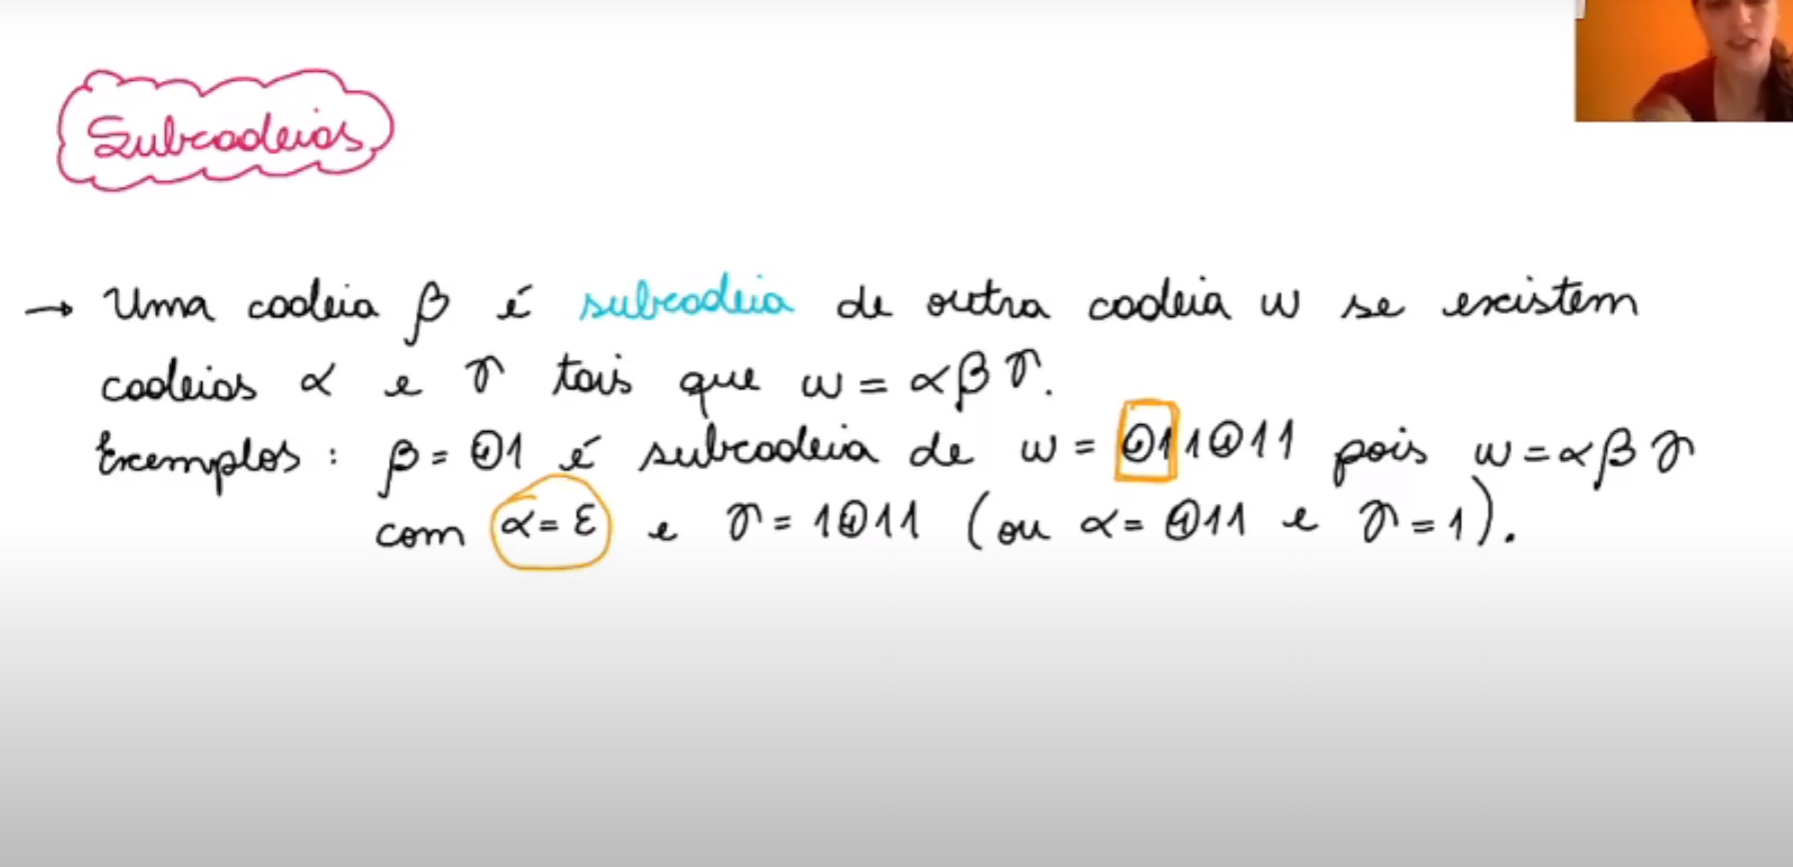 Subcadeias
→ Uma cadeia β é subcadeia de outra cadeia w se existem
cadeias α e γ tais que w = αβγ.
Exemplos : β = 01 é subcadeia de w = 011011 pois w = αβγ
com α = ε e γ = 1011 (ou α = 011 e γ = 1).